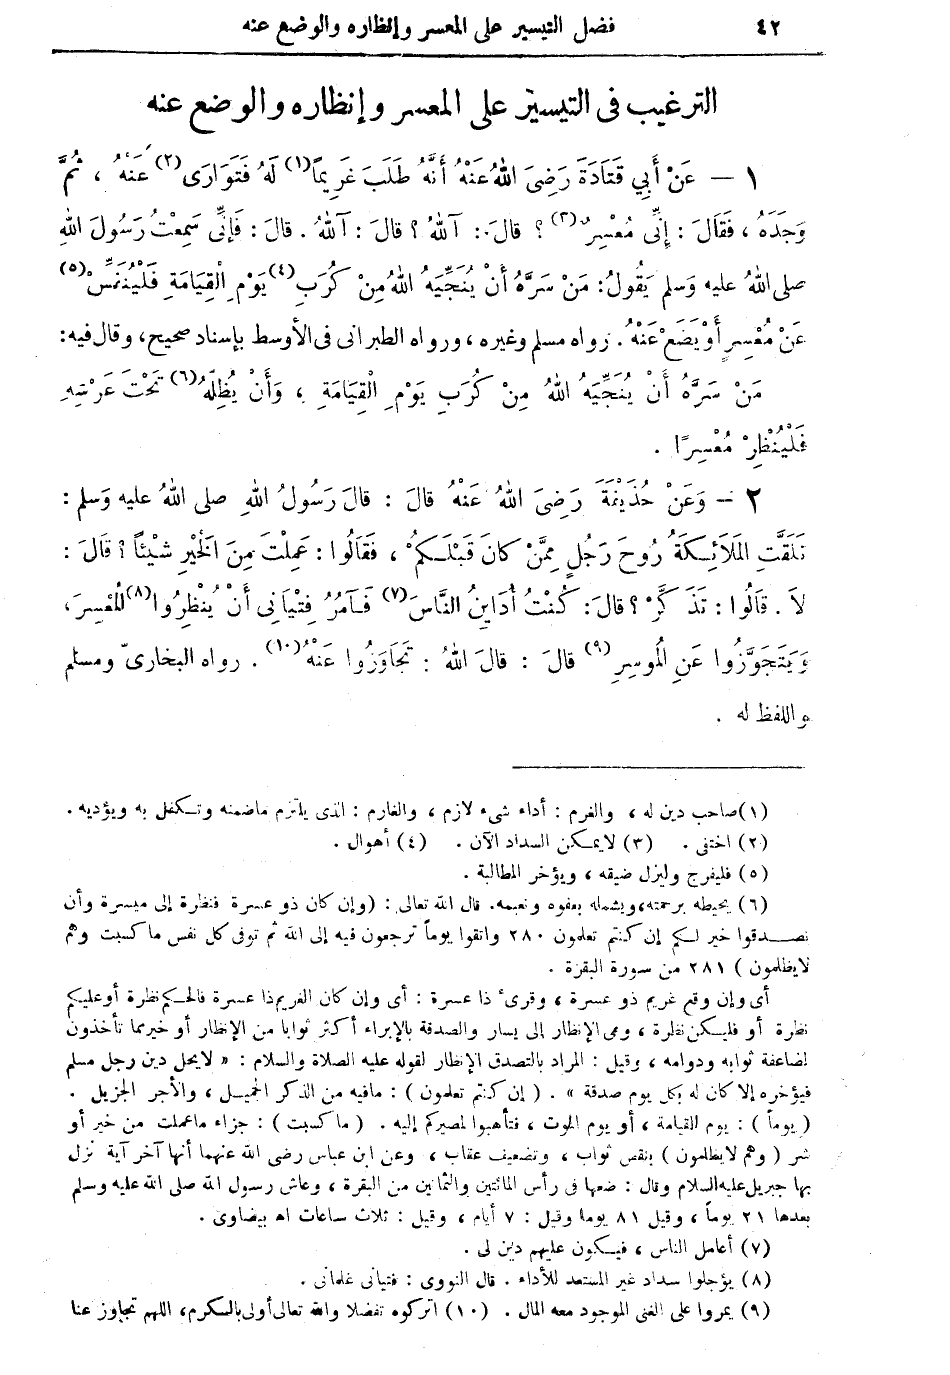 ٤٢ فضل التيسير على المعسر وإنظاره والوضع عنه
الترغيب فى التيسير على المعسر وإنظاره والوضع عنه
١ — عَنْ أَبِي قَتَادَةَ رَضِىَ اللهُ عَنْهُ أَنَّهُ طَلَبَ غَرِيمًا(١) لَهُ فَتَوَارَى(٢) عَنْهُ ، ثُمَّ
وَجَدَهُ ، فَقَالَ : إِنِّى مُعْسِرٌ(٣) ؟ قالَ : آللهُ ؟ قالَ : آللهُ . قالَ : فَإِنِّى سَمِعْتُ رَسُولَ اللهِ
صلى اللهُ عليه وَسلم يَقُولُ : مَنْ سَرَّهُ أَنْ يُنَجِّيَهُ اللهُ مِنْ كُرَبِ(٤) يَوْمِ الْقِيَامَةِ فَلْيُنَفِّسْ(٥)
عَنْ مُعْسِرٍ أَوْ يَضَعْ عَنْهُ . رواه مسلم وغيره ، ورواه الطبرانى فى الأوسط بإسناد صحيح ، وقال فيه :
مَنْ سَرَّهُ أَنْ يُنَجِّيَهُ اللهُ مِنْ كُرَبِ يَوْمِ الْقِيَامَةِ ، وَأَنْ يُظِلَّهُ(٦) تَحْتَ عَرْشِهِ
فَلْيُنْظِرْ مُعْسِرًا .
٢ — وَعَنْ حُذَيْفَةَ رَضِىَ اللهُ عَنْهُ قالَ : قالَ رَسُولُ اللهِ صلى اللهُ عليه وَسلم :
تَلَقَّتِ المَلَائِكَةُ رُوحَ رَجُلٍ مِمَّنْ كانَ قَبْلَكُمْ ، فَقَالُوا : عَمِلْتَ مِنَ الْخَيْرِ شَيْئًا ؟ قالَ :
لاَ . قالُوا : تَذَكَّرْ ؟ قالَ : كُنْتُ أُدَايِنُ النَّاسَ(٧) فَآمُرُ فِتْيَانِى أَنْ يُنْظِرُوا(٨) المُعْسِرَ ،
وَيَتَجَوَّزُوا عَنِ المُوسِرِ(٩) قالَ : قالَ اللهُ : تَجَاوَزُوا عَنْهُ(١٠) . رواه البخارىّ ومسلم
واللفظ له .
(١) صاحب دين له ، والغرم : أداء شىء لازم ، والغارم : الذى يلتزم ماضمنه وتكفل به ويؤديه .
(٢) اختفى . (٣) لايمكن السداد الآن . (٤) أهوال .
(٥) فليفرج وليزل ضيقه ، ويؤخر المطالبة .
(٦) يحيطه برحمته، ويشمله بعفوه ونعيمه. قال الله تعالى : (وإن كان ذو عسرة فنظرة إلى ميسرة وأن
تصدقوا خير لكم إن كنتم تعلمون ٢٨٠ واتقوا يوماً ترجعون فيه إلى الله ثم توفى كل نفس ماكسبت وهم
لايظلمون ) ٢٨١ من سورة البقرة .
أى وإن وقع غريم ذو عسرة ، وقرىء ذا عسرة : أى وإن كان الغريم ذا عسرة فالحكم نظرة أوعليكم
نظرة أو فليكن نظرة ، وهى الإنظار إلى يسار والصدقة بالإبراء أكثر ثوابا من الإنظار أو خير مما تأخذون
لمضاعفة ثوابه ودوامه ، وقيل : المراد بالتصدق الإنظار لقوله عليه الصلاة والسلام : « لايحل دين رجل مسلم
فيؤخره إلا كان له بكل يوم صدقة » . ( إن كنتم تعلمون ) : مافيه من الذكر الجميل ، والأجر الجزيل .
( يوماً ) : يوم القيامة ، أو يوم الموت ، فتأهبوا لمصيركم إليه . ( ماكسبت ) : جزاء ماعملت من خير أو
شر ( وهم لايظلمون ) بنقص ثواب ، وتضعيف عقاب ، وعن ابن عباس رضى الله عنهما أنها آخر آية نزل
بها جبريل عليه السلام وقال : ضعها فى رأس المائتين والثمانين من البقرة ، وعاش رسول الله صلى الله عليه وسلم
بعدها ٢١ يوماً ، وقيل ٨١ يوما وقيل : ٧ أيام ، وقيل : ثلاث ساعات اه بيضاوى .
(٧) أعامل الناس ، فيكون عليهم دين لى .
(٨) يؤجلوا سداد غير المستعد للأداء . قال النووى : فتيانى غلمانى .
(٩) يمروا على الغنى الموجود معه المال . (١٠) اتركوه تفضلا والله تعالى أولى بالكرم، اللهم تجاوز عنا